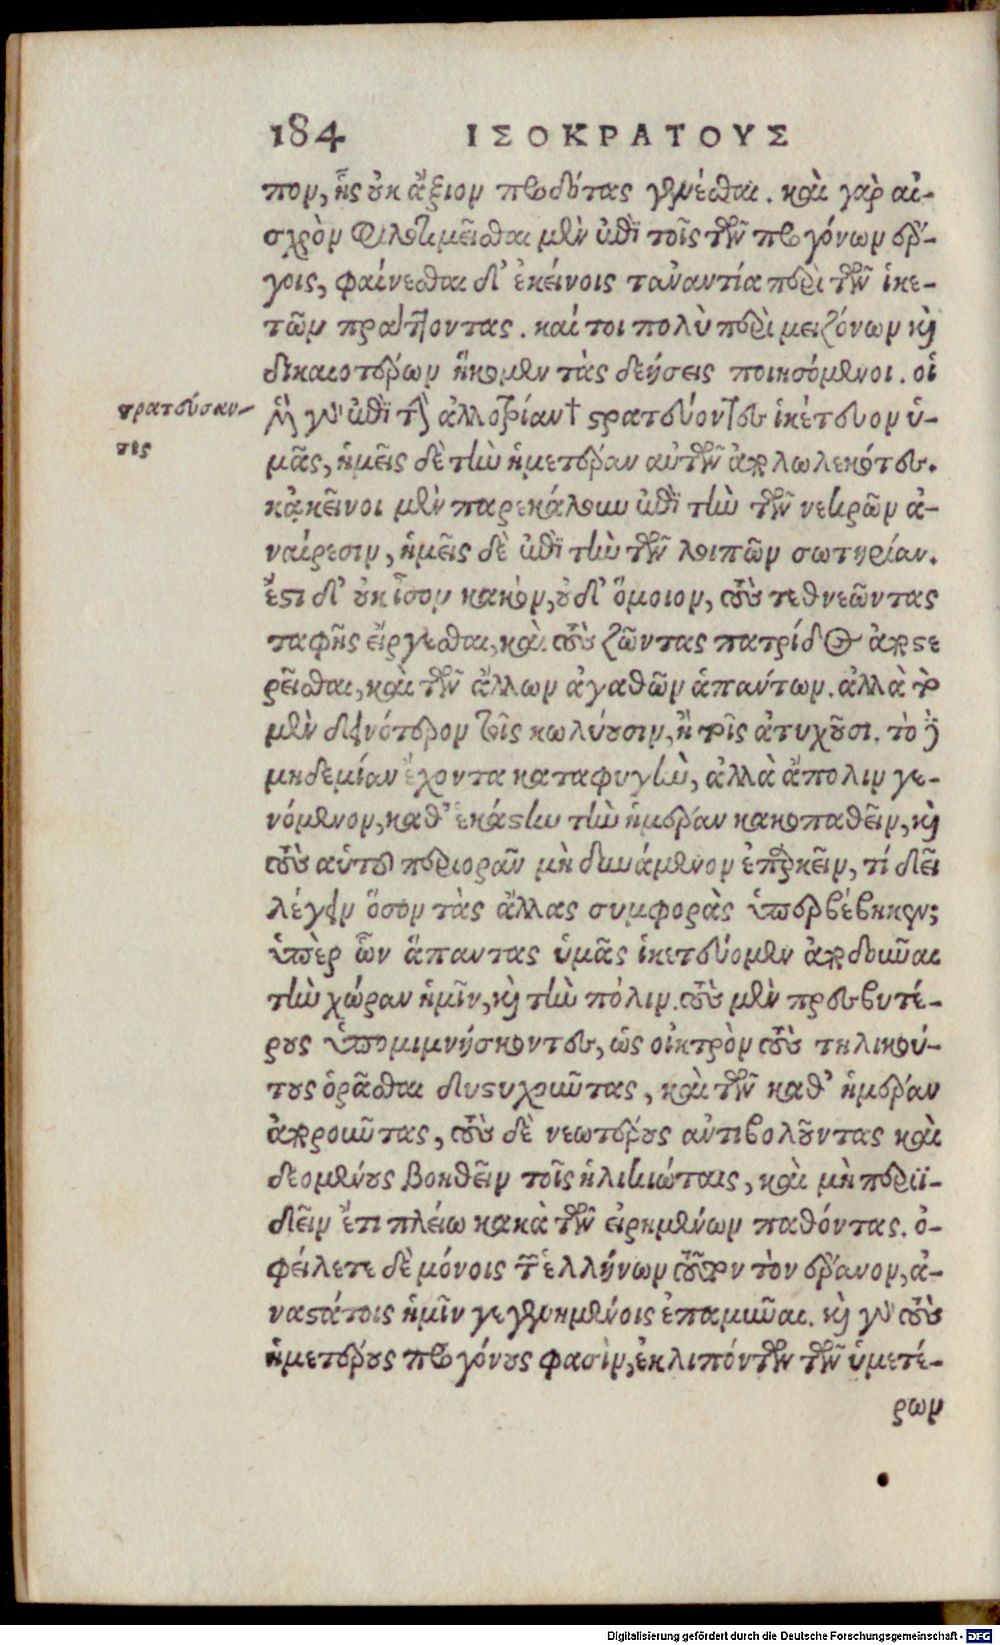 184 ΙΣΟΚΡΑΤΟΥΣ
που, ἧς οὐκ ἄξιον προδότας γενέσθαι. καὶ γὰρ αἰ-
σχρὸν φιλοτιμεῖσθαι μὲν ἐπὶ τοῖς τῶν προγόνων ἔρ-
γοις, φαίνεσθαι δ' ἐκείνοις τἀναντία περὶ τῶν ἱκε-
τῶν πράττοντας. καί τοι πολὺ περὶ μειζόνων καὶ
δικαιοτέρων ἥκομεν τὰς δεήσεις ποιησόμενοι. οἱ
μὲν γὰρ ἐπὶ τὴν ἀλλοτρίαν† στρατεύοντες ἱκέτευον ὑ-
στρατεύσαν-
τες
μᾶς, ἡμεῖς δὲ τὴν ἡμετέραν αὐτῶν ἀπολωλεκότες.
κἀκεῖνοι μὲν παρεκάλουν ἐπὶ τὴν τῶν νεκρῶν ἀ-
ναίρεσιν, ἡμεῖς δὲ ἐπὶ τὴν τῶν λοιπῶν σωτηρίαν.
ἔστι δ' οὐκ ἴσον κακὸν, οὐδ' ὅμοιον, τοὺς τεθνεῶντας
ταφῆς εἴργεσθαι, καὶ τοὺς ζῶντας πατρίδος ἀποστε
ρεῖσθαι, καὶ τῶν ἄλλων ἀγαθῶν ἁπάντων. ἀλλὰ τὸ
μὲν δεινότερον τοῖς κωλύουσιν, ἢ τοῖς ἀτυχοῦσι. τὸ δὲ
μηδεμίαν ἔχοντα καταφυγὴν, ἀλλὰ ἄπολιν γε-
νόμενον, καθ' ἑκάστην τὴν ἡμέραν κακοπαθεῖν, καὶ
τοὺς αὑτοῦ περιορᾶν μὴ δυνάμενον ἐπαρκεῖν, τί δεῖ
λέγειν ὅσον τὰς ἄλλας συμφορὰς ὑπερβέβηκεν;
ὑπὲρ ὧν ἅπαντας ὑμᾶς ἱκετεύομεν ἀποδοῦναι
τὴν χώραν ἡμῖν, καὶ τὴν πόλιν. τοὺς μὲν πρεσβυτέ-
ρους ὑπομιμνήσκοντες, ὡς οἰκτρὸν τοὺς τηλικού-
τους ὁρᾶσθαι δυστυχοῦντας, καὶ τῶν καθ' ἡμέραν
ἀποροῦντας, τοὺς δὲ νεωτέρους ἀντιβολοῦντας καὶ
δεομένους βοηθεῖν τοῖς ἡλικιώταις, καὶ μὴ περιϊ-
δεῖν ἔτι πλείω κακὰ τῶν εἰρημένων παθόντας. ὀ-
φείλετε δὲ μόνοις τῶν ἑλλήνων τοῦτον τὸν ἔρανον, ἀ-
ναστάτοις ἡμῖν γεγενημένοις ἐπαμῦναι. καὶ γὰρ τοὺς
ἡμετέρους προγόνους φασὶν, ἐκλιπόντων τῶν ὑμετέ-
ρων
Digitalisierung gefördert durch die Deutsche Forschungsgemeinschaft - DFG